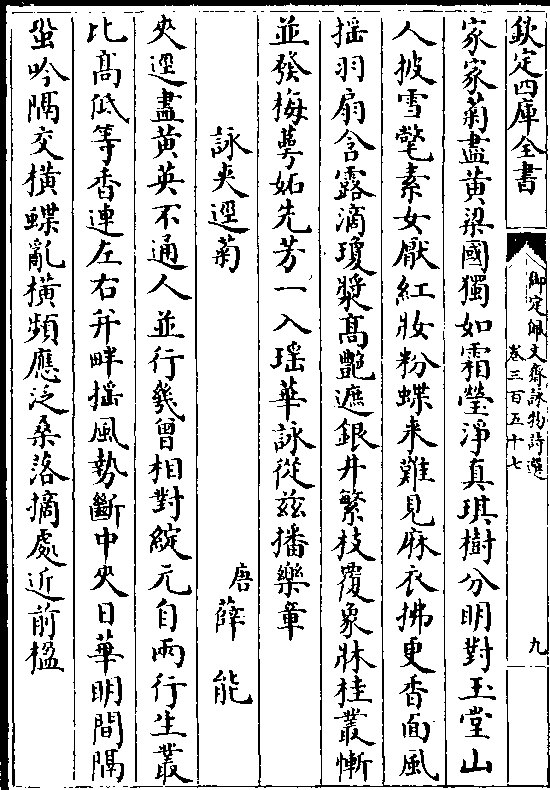 欽定四庫全書
御定佩文齋詠物詩選
卷三百五十七
九
家家菊盡黃梁國獨如霜瑩淨真琪樹分明對玉堂山
人披雪氅素女厭紅妝粉蝶來難見麻衣拂更香面風
揺羽扇含露滴瓊漿髙艷遮銀井繁枝覆象牀桂叢慚
並發梅蕚妬先芳一入瑶華詠從兹播樂章
詠夾逕菊
唐薛能
夾逕盡黃英不通人並行幾曾相對綻元自兩行生叢
比髙低等香連左右并畔揺風勢斷中夾日華明間隔
蛩吟隔交橫蝶亂橫頻應泛桑落摘處近前楹